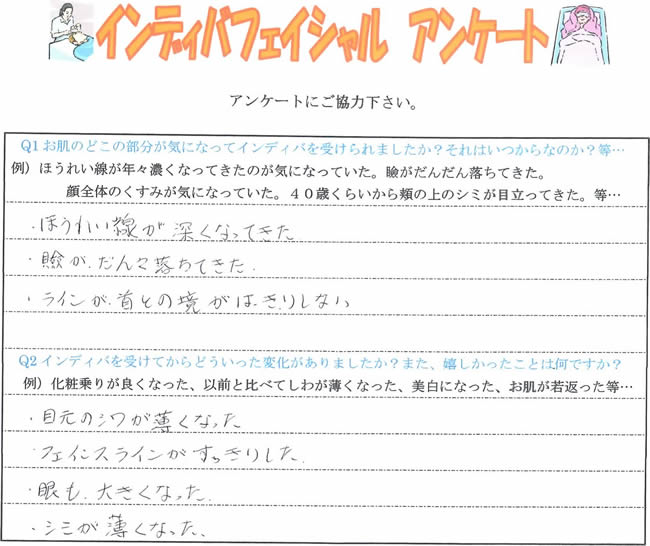 インディバフェイシャル アンケート
アンケートにご協力下さい。
Q1お肌のどこの部分が気になってインディバを受けられましたか？それはいつからなのか？等…
例）ほうれい線が年々濃くなってきたのが気になっていた。瞼がだんだん落ちてきた。
顔全体のくすみが気になっていた。４０歳くらいから頬の上のシミが目立ってきた。等…
・ほうれい線が深くなってきた
・瞼が、だんだん落ちてきた。
・ラインが、首との境がはっきりしない
Q2インディバを受けてからどういった変化がありましたか？また、嬉しかったことは何ですか？
例）化粧乗りが良くなった、以前と比べてしわが薄くなった、美白になった、お肌が若返った等…
・目元のシワが薄くなった
・フェイスラインがすっきりした。
・眼も、大きくなった。
・シミが薄くなった、